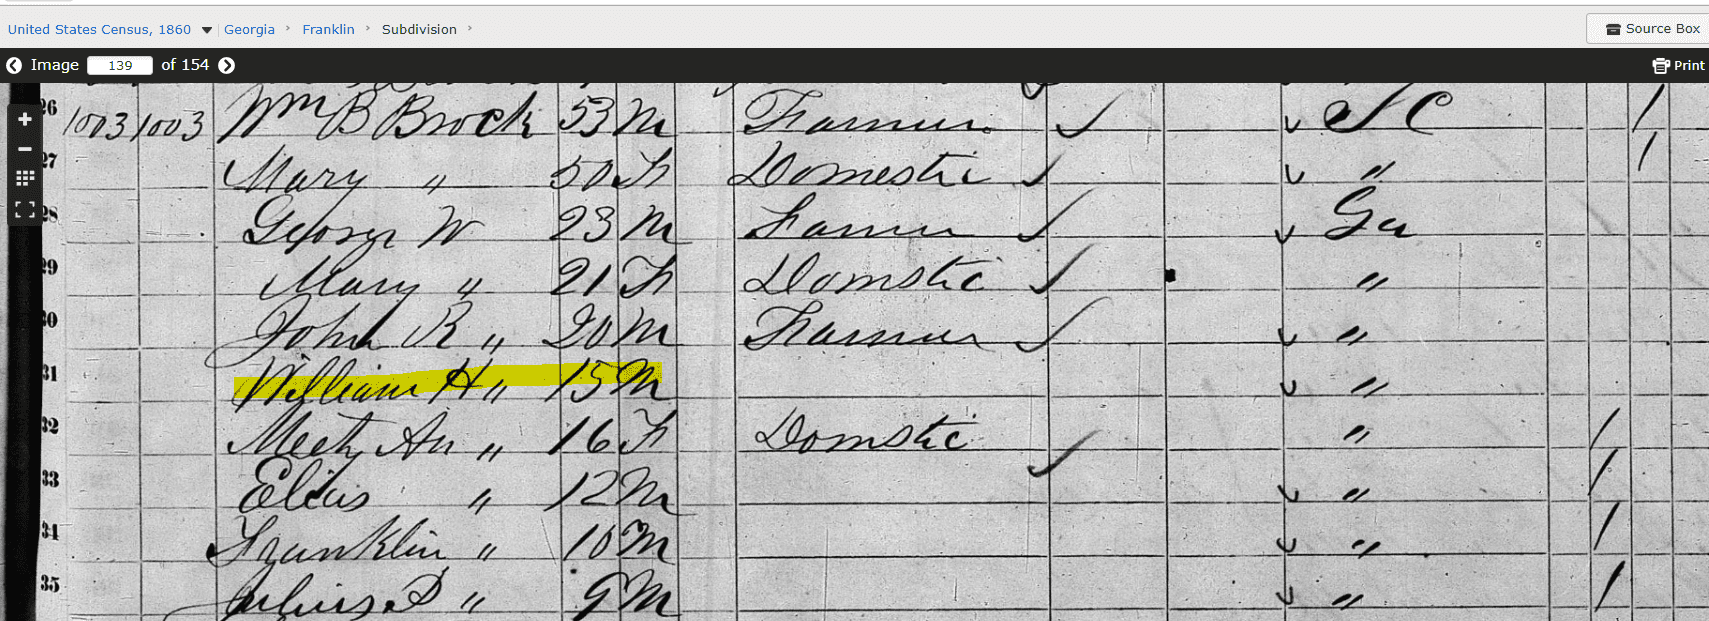 United States Census, 1860 Georgia Franklin Subdivision Source Box
Image 139 of 154 Print
26 1003 1003 Wm B Brock 53 M Farmer S C /
27 Mary " 50 F Domestic " /
28 George W 23 M Farmer Ga
29 Mary " 21 F Domstic "
30 John R " 20 M Farmer "
31 William H " 15 M "
32 An " 16 F Domstic " /
33 Elias " 12 M " /
34 Franklin " 10 M " /
35 Julius " 9 M " /